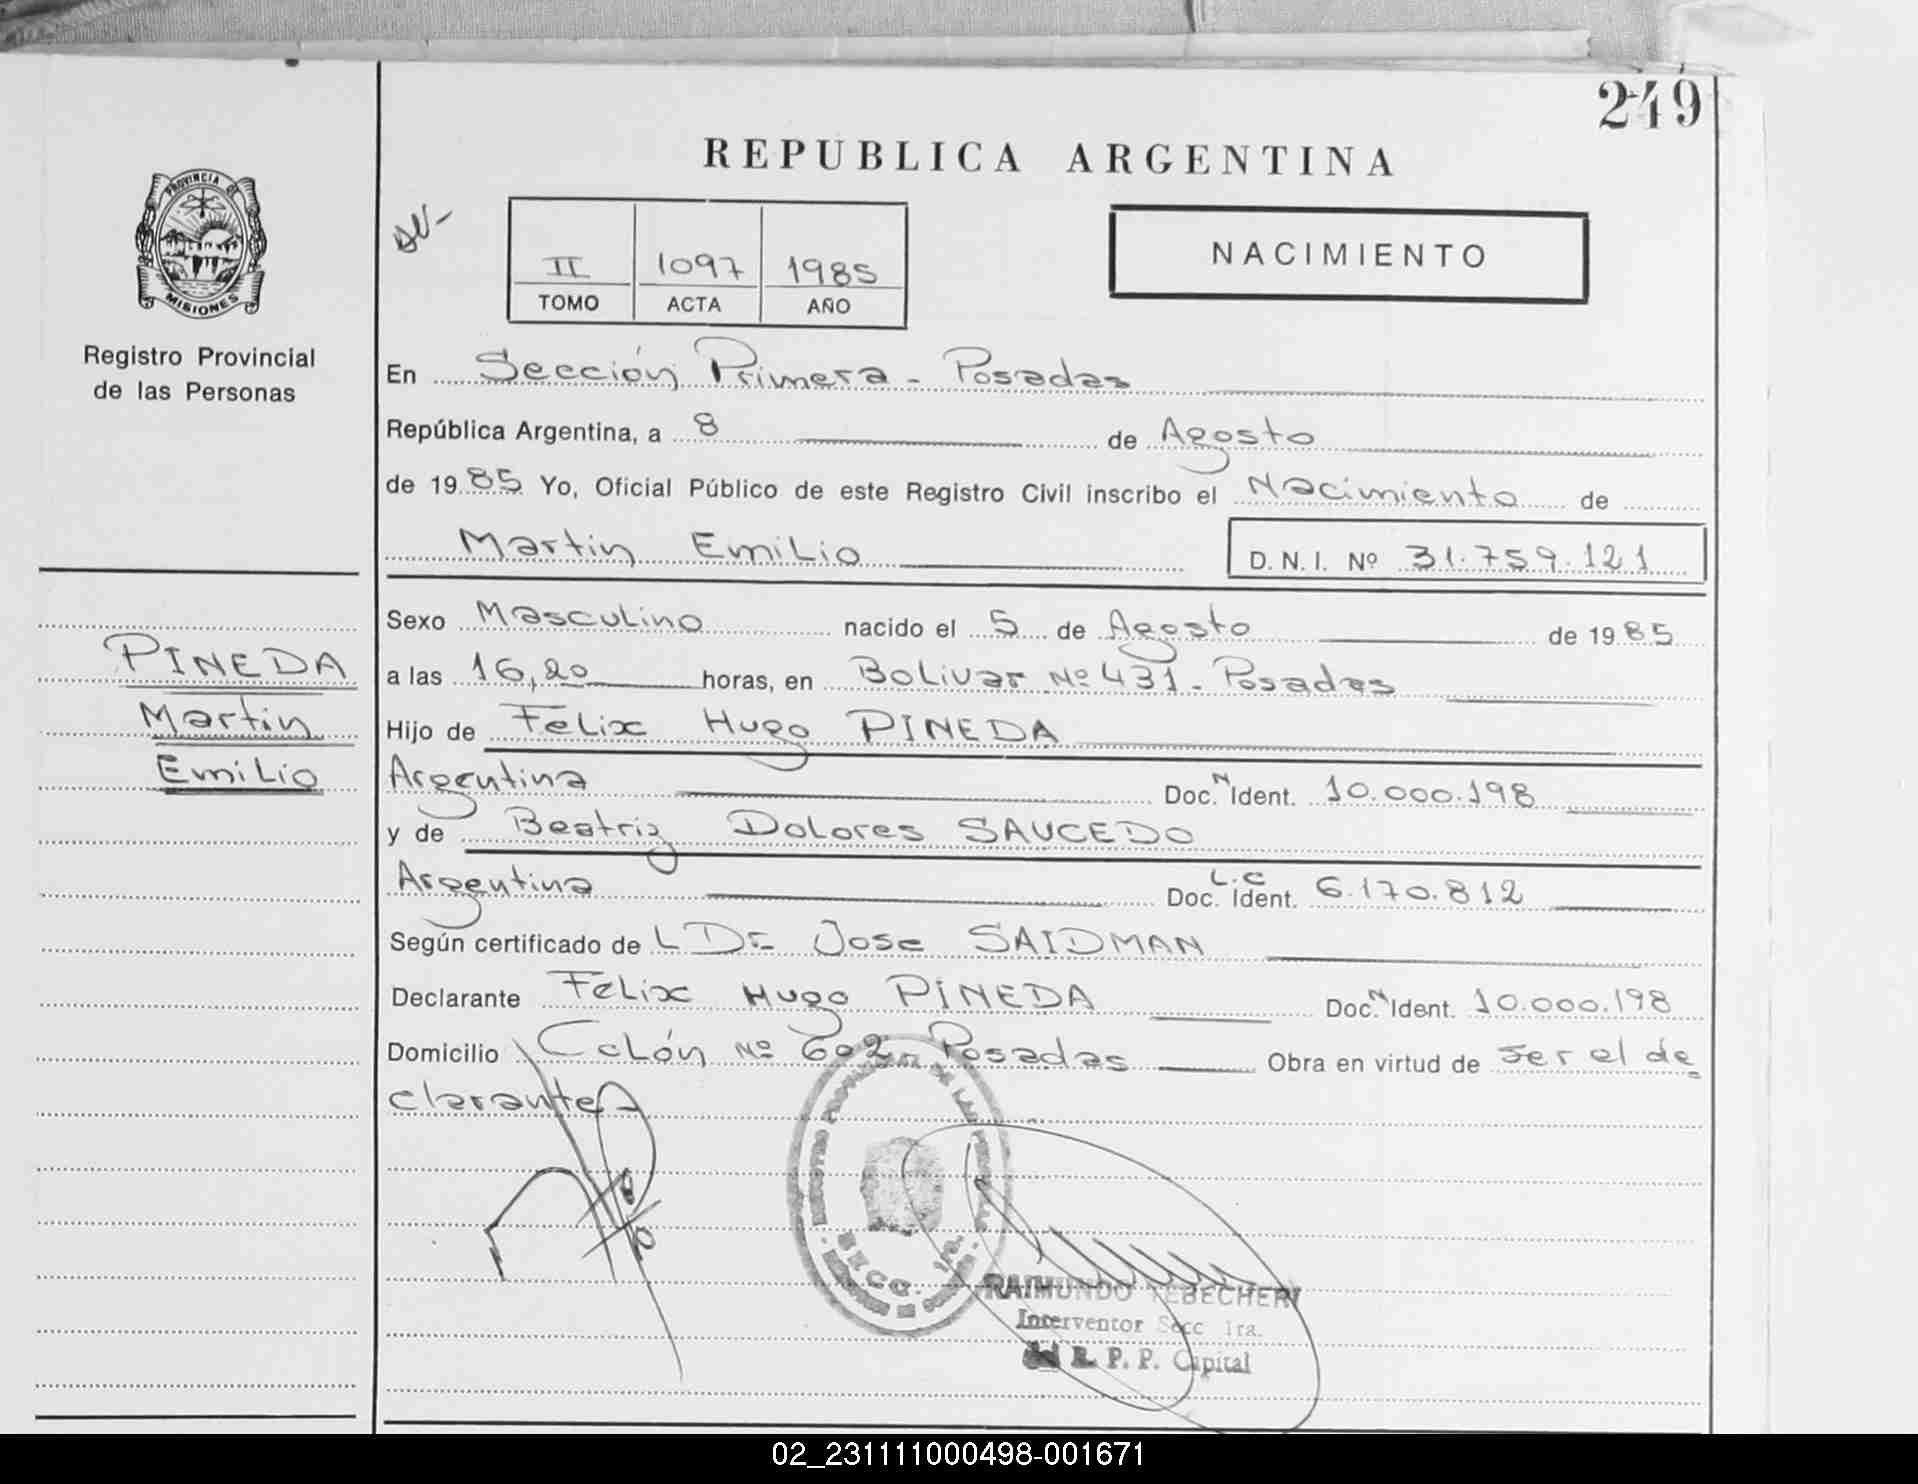 249
REPUBLICA ARGENTINA
PROVINCIA DE
MISIONES
Registro Provincial
de las Personas
II 1097 1985
TOMO ACTA AÑO
NACIMIENTO
En Sección Primera - Posadas
República Argentina, a 8 de Agosto
de 1985 Yo, Oficial Público de este Registro Civil inscribo el Nacimiento de
Martin Emilio D. N. I. Nº 31.759.121
PINEDA
Martin
Emilio
Sexo Masculino nacido el 5 de Agosto de 1985
a las 16,20 horas, en Bolivar Nº 431 - Posadas
Hijo de Felix Hugo PINEDA
Argentina Doc. N Ident. 10.000.198
y de Beatriz Dolores SAUCEDO
Argentina Doc. L.C Ident. 6.170.812
Según certificado de L Dr Jose SAIDMAN
Declarante Felix Hugo PINEDA Doc. N Ident. 10.000.198
Domicilio Colón Nº 602 - Posadas Obra en virtud de ser el de
clarante
SECC. 1ra.
RAIMUNDO TEBECHERI
Interventor Secc 1ra.
R. P. P. Capital
02_231111000498-001671